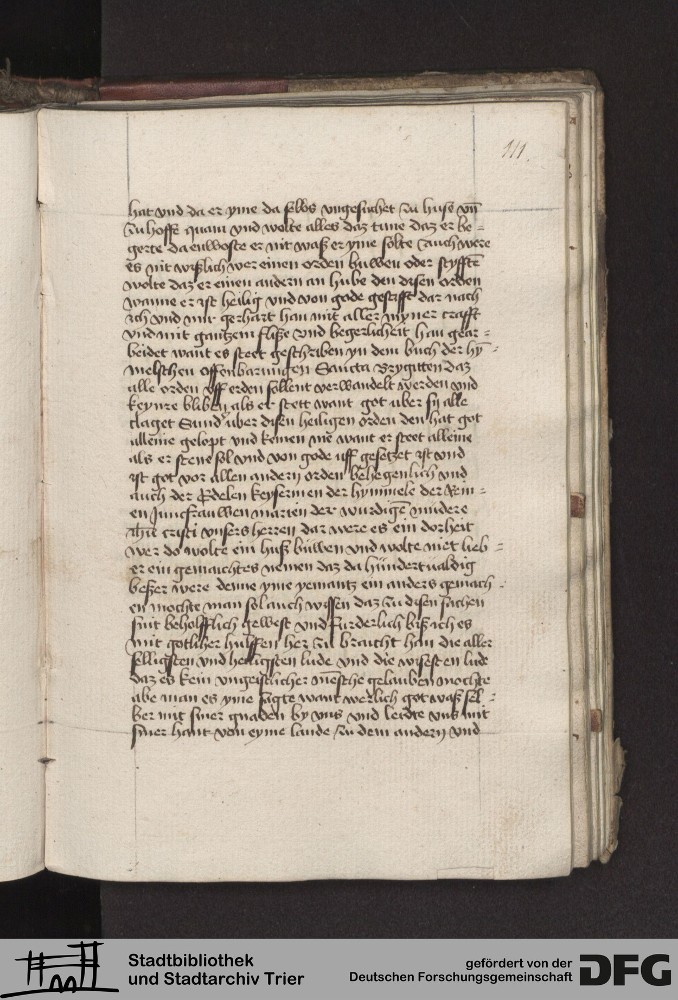 111.
hat vnd da er yme da selbs vngesuchet zu huß vn̄
zu hoffe quam vnd wolte alles daz tune daz er be-
gerte da enwoste er nit waß er yme solte Auch were
es nit wißlich wer einen orden buwen oder styfftē
wolte daz er einen andern an hube den disen orden
wanne er ist heilig vnd von gode gestifft dar nach
ich vnd mit gerhart han mit aller myner crafft
vnd mit gantzem flisse vnd begerlicheit han gear-
beidet want es steet geschriben yn dem buch der hy-
melschen offenbarungen Sancta Brygitten daz
alle orden vff erden sollent verwandelt werden vnd
keynre bliben als er stett want got uber sij alle
claget Sund uber disen heiligen orden den hat got
alleine gelopt vnd keinen me want er steet alleine
als er stene sol vnd von gode uff gesetzet ist vnd
ist got vor allen andern orden behegenlich vnd
auch der Edelen keyserinnen der hymmele der Rein-
en Juncfrauwen marien der wurdigē mudere
ihū cristi vnsers herren dar were es ein dorheit
wer do wolte ein huß buwen vnd wolte niet lieb-
er ein gemachtes nemen daz da hundertualdig
beßer were denne yme yemantz ein anders gemach-
en mochte man sol auch wissen daz zu disen sachen
sint beholfflich gewest vnd furderlich biß ich es
mit gotlicher hulffen her zu bracht han die aller
selligsten vnd heiligsten lude vnd die wisesten lude
daz es kein vngeistlicher mēsche gelauben mochte
abe man es yme sagte want werlich got waß sel-
ber mit siner gnaden by vns vnd leidte vns mit
siner hant von eyme lande zu dem andern vnd
Stadtbibliothek
und Stadtarchiv Trier
gefördert von der
Deutschen Forschungsgemeinschaft
DFG